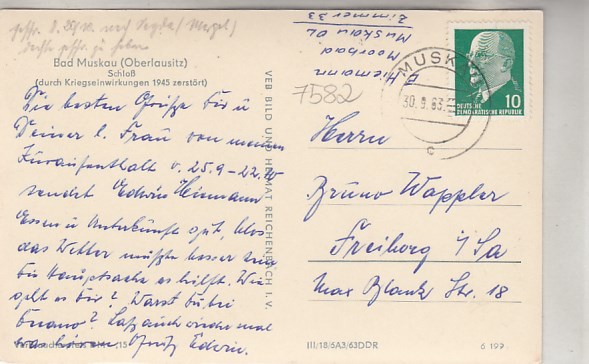 Bad Muskau (Oberlausitz)
Schloß
(durch Kriegseinwirkungen 1945 zerstört)
Die besten Grüße Dir u
Deiner l. Frau von meinem
Kuraufenthalt v. 25.9-22.10
sendet Edwin Hiemann
Essen u Unterkünfte gut, blos
das Wetter müßte besser sein
die Hauptsache es hilft. Wie
geht es Dir? Warst Du bei
Laß auch wieder mal
von hören Gruß Edwin.
VEB BILD UND HEIMAT REICHENBACH I. V.
E Hiemann
Moorbad
Muskau OL
Zimmer 33
7582
MUSKAU
30.9.63
c
DEUTSCHE
DEMOKRATISCHE REPUBLIK
10
Herrn
Bruno Wappler
Freiberg i/Sa
Max Planck Str. 18
III/18/6A3/63DDR
6 199